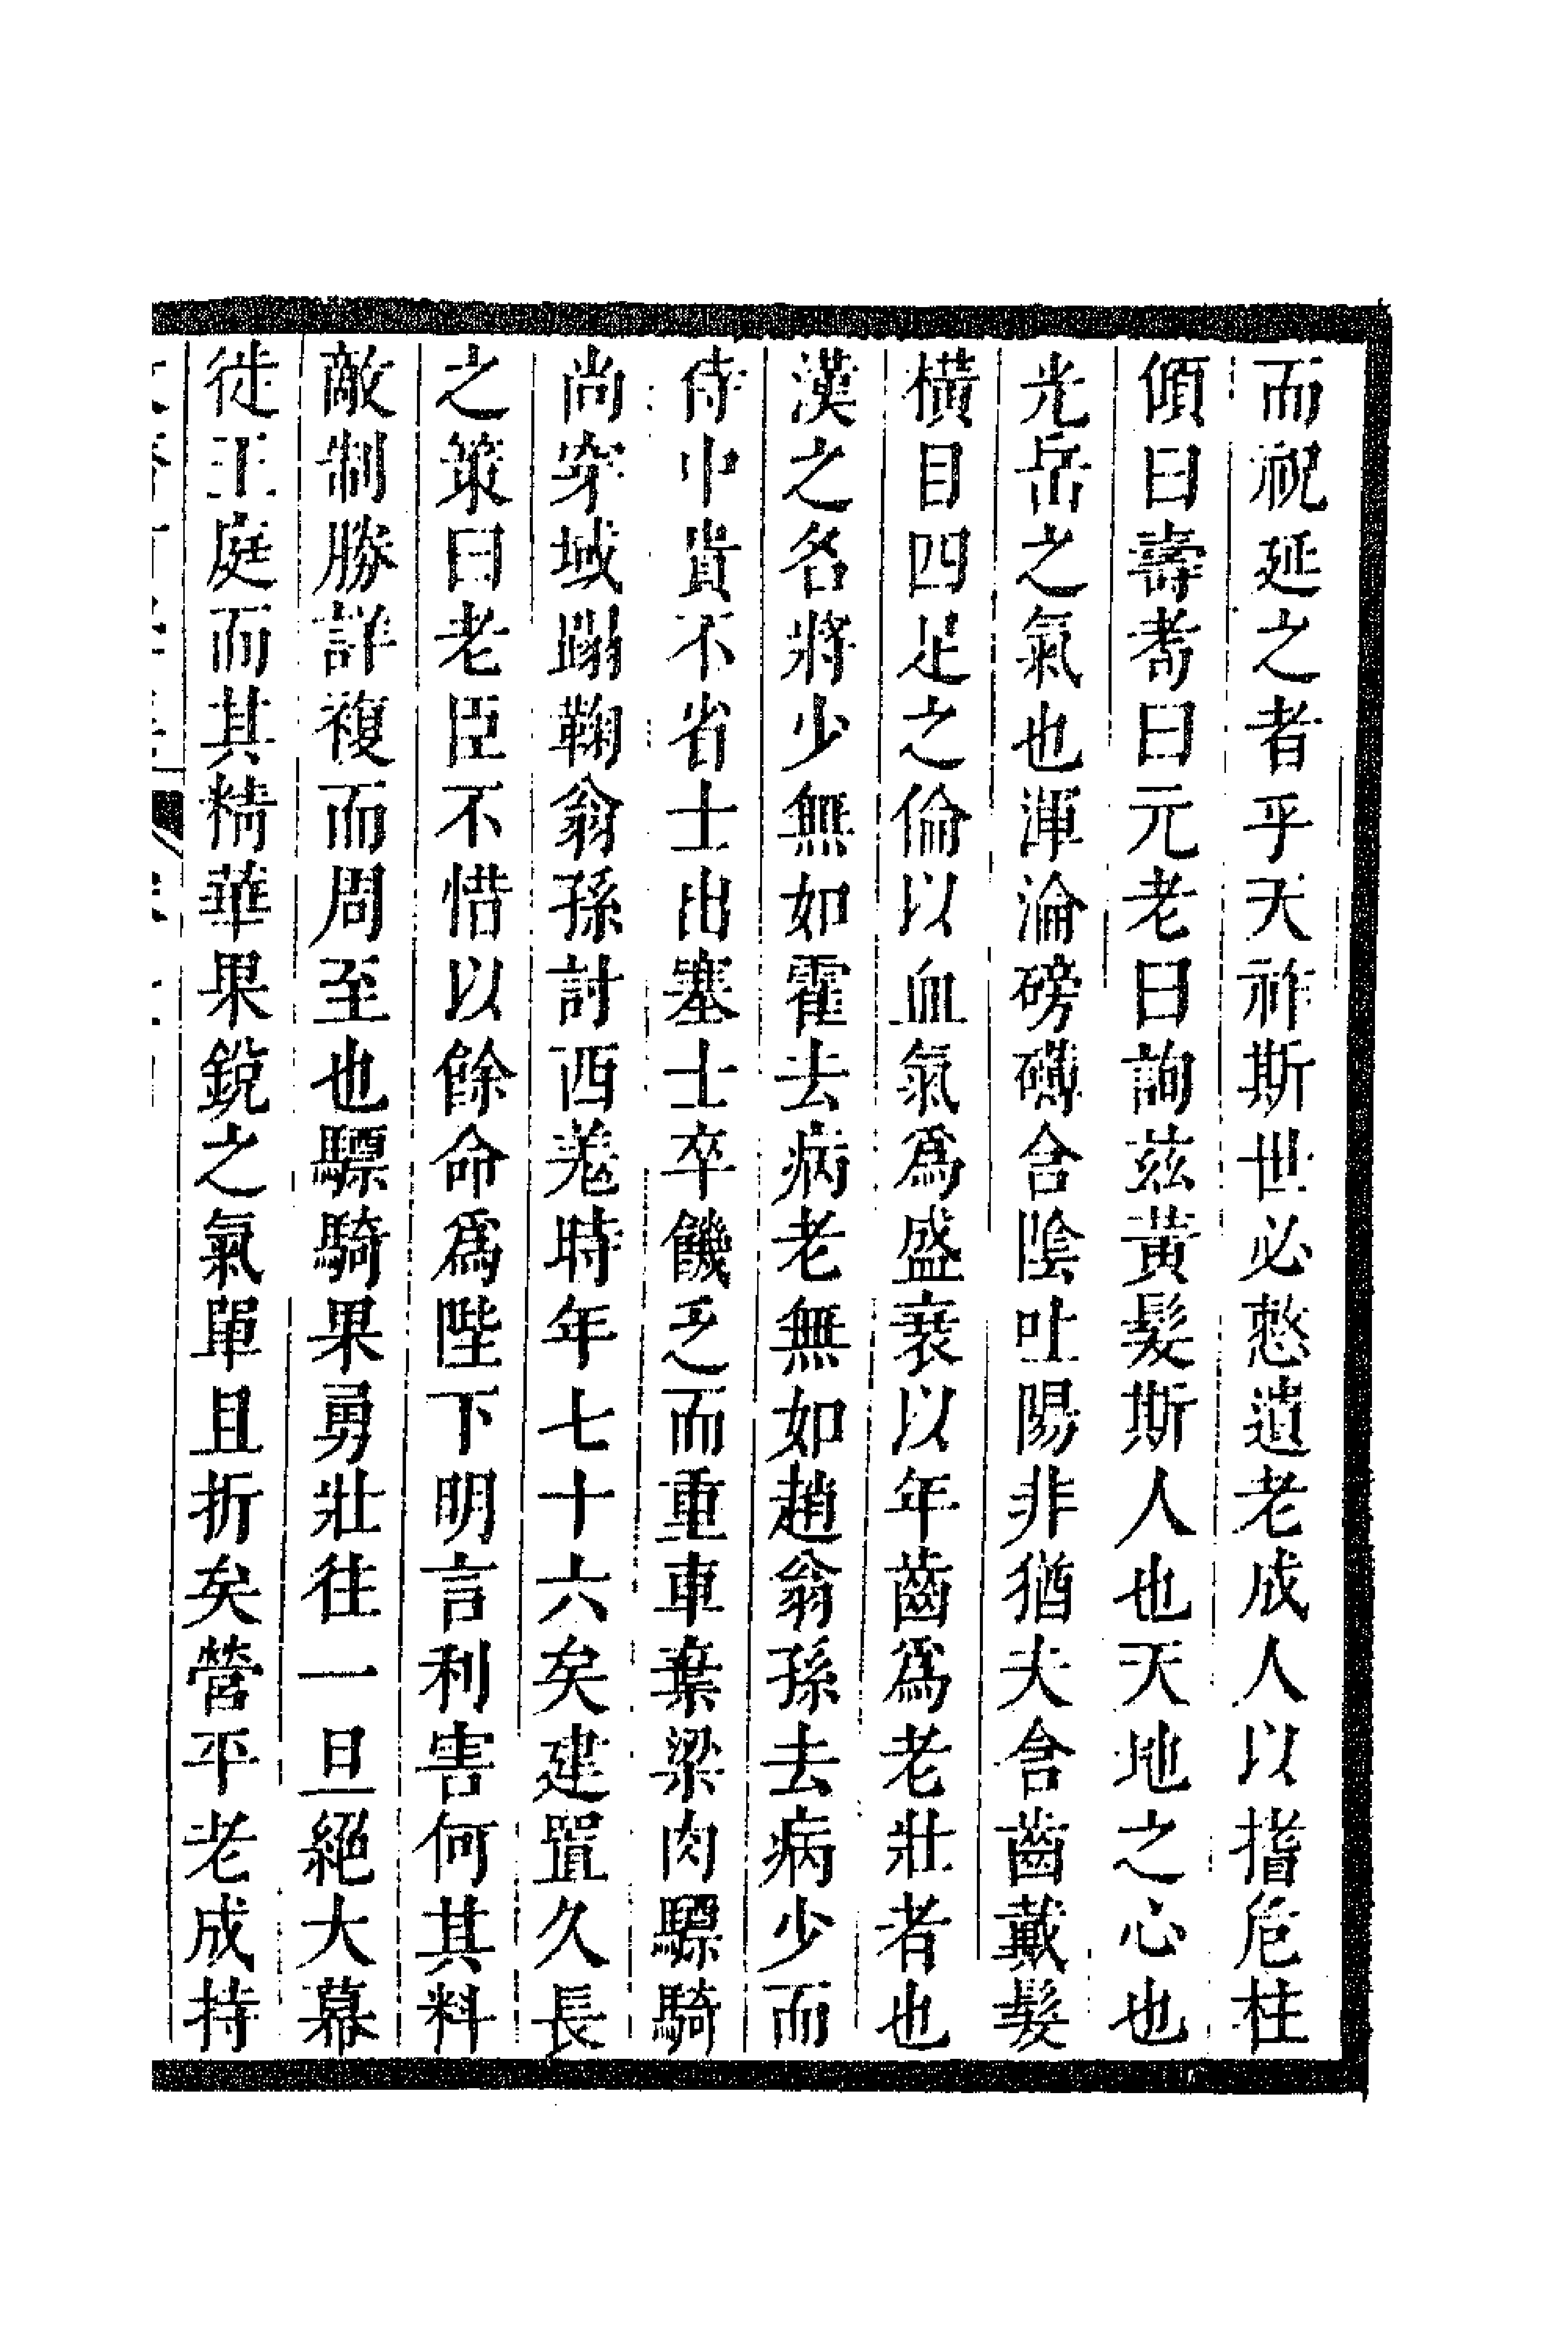 而祝延之者乎天祚斯世必憗遺老成人以搘危柱
傾曰壽耇曰元老曰詢茲黃髮斯人也天地之心也
光岳之氣也渾淪磅礴含陰吐陽非猶夫含齒戴髮
橫目四足之倫以血氣爲盛衰以年齒爲老壯者也
漢之名將少無如霍去病老無如趙翁孫去病少而
侍中貴不省士出塞士卒饑乏而重車棄梁肉驃騎
尚穿域蹋鞠翁孫討西羗時年七十六矣建置久長
之策曰老臣不惜以餘命爲陛下明言利害何其料
敵制勝詳複而周至也驃騎果勇壯往一旦絕大幕
徙王庭而其精華果銳之氣單且折矣營平老成持